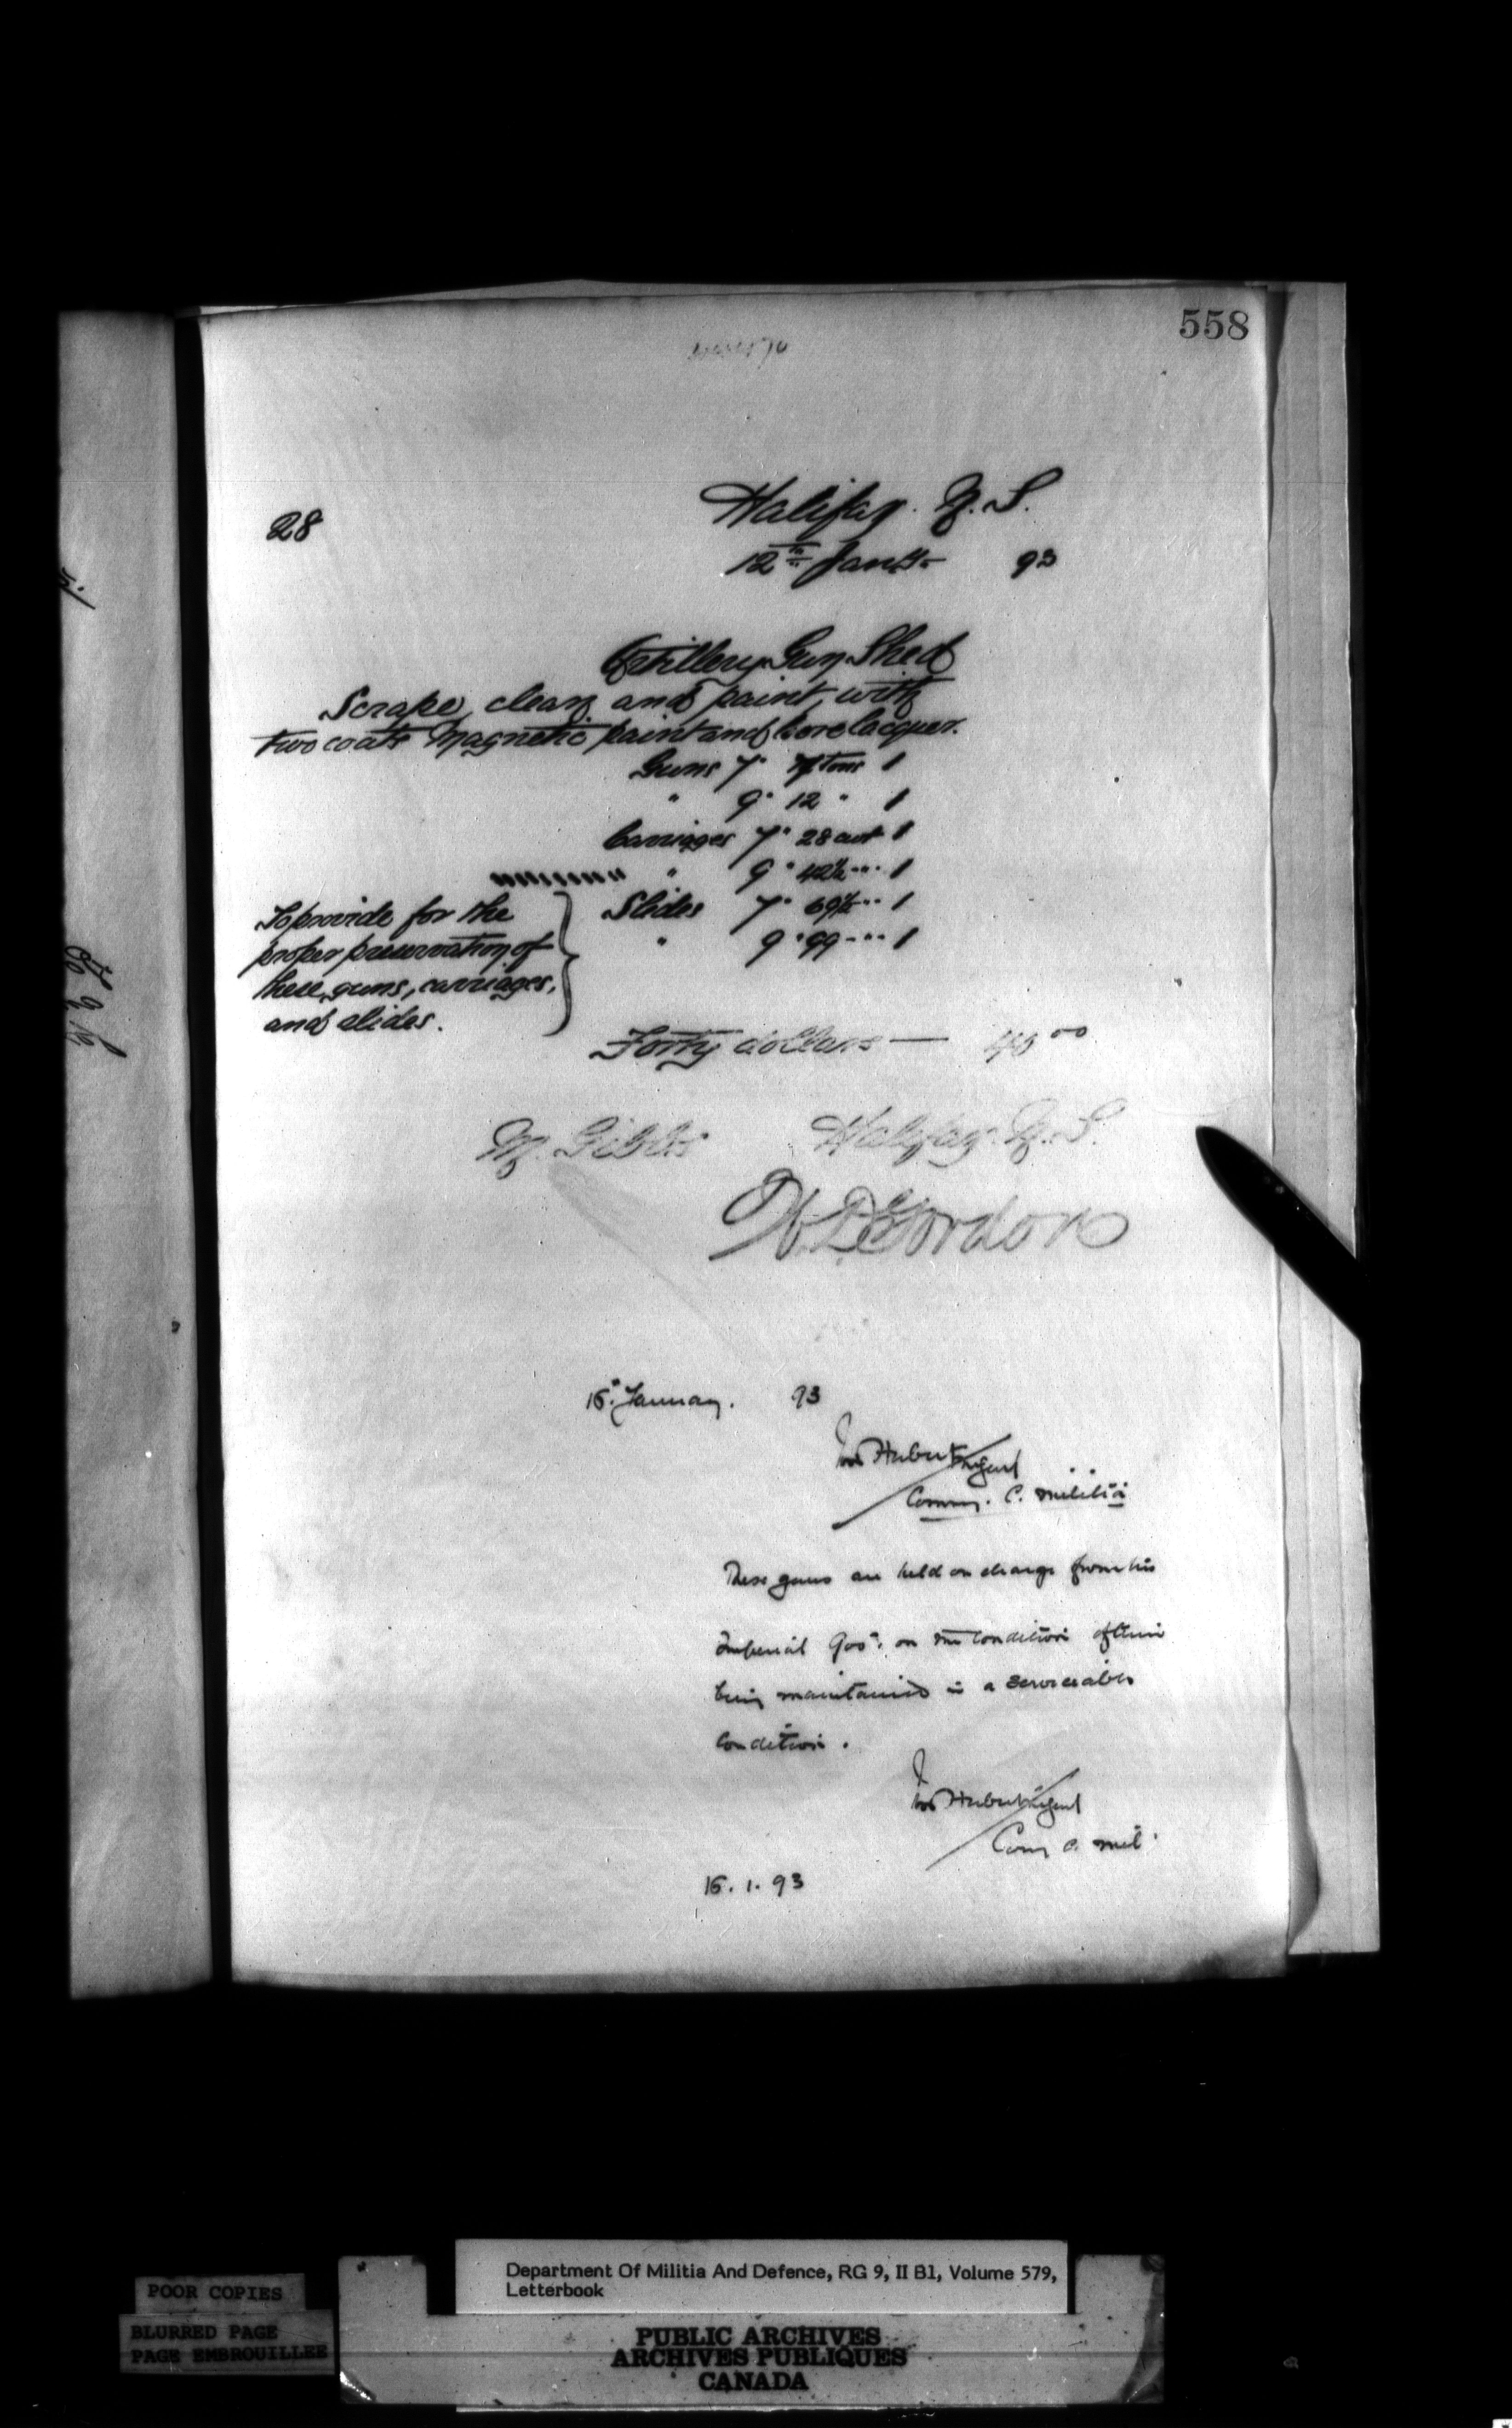 558
28
Halifax. N.S.
12th Jany. 93
Artillery Gun Shed
Scrape, clean and paint, with
two coats Magnetic paint and bore lacquer.
Guns 7" 7 tons 1
" 9" 12 " 1
Carriages 7" 28 cwt 1
" 9" 42½ " " 1
Slides 7" 69½ " " 1
" 9" 99 " " 1
To provide for the
proper preservation of
these guns, carriages,
and slides.
Forty dollars — 40 00
M. Gibbs Halifax N.S.
W.D. Gordon
16th January. 93
C. Militia
These guns are held on charge from his
Imperial Govt. on the condition of their
being maintained in a serviceable
condition.
C. Mil.
16. 1. 93
Department Of Militia And Defence, RG 9, II B1, Volume 579,
Letterbook
POOR COPIES
BLURRED PAGE
PAGE EMBROUILLEE
PUBLIC ARCHIVES
ARCHIVES PUBLIQUES
CANADA